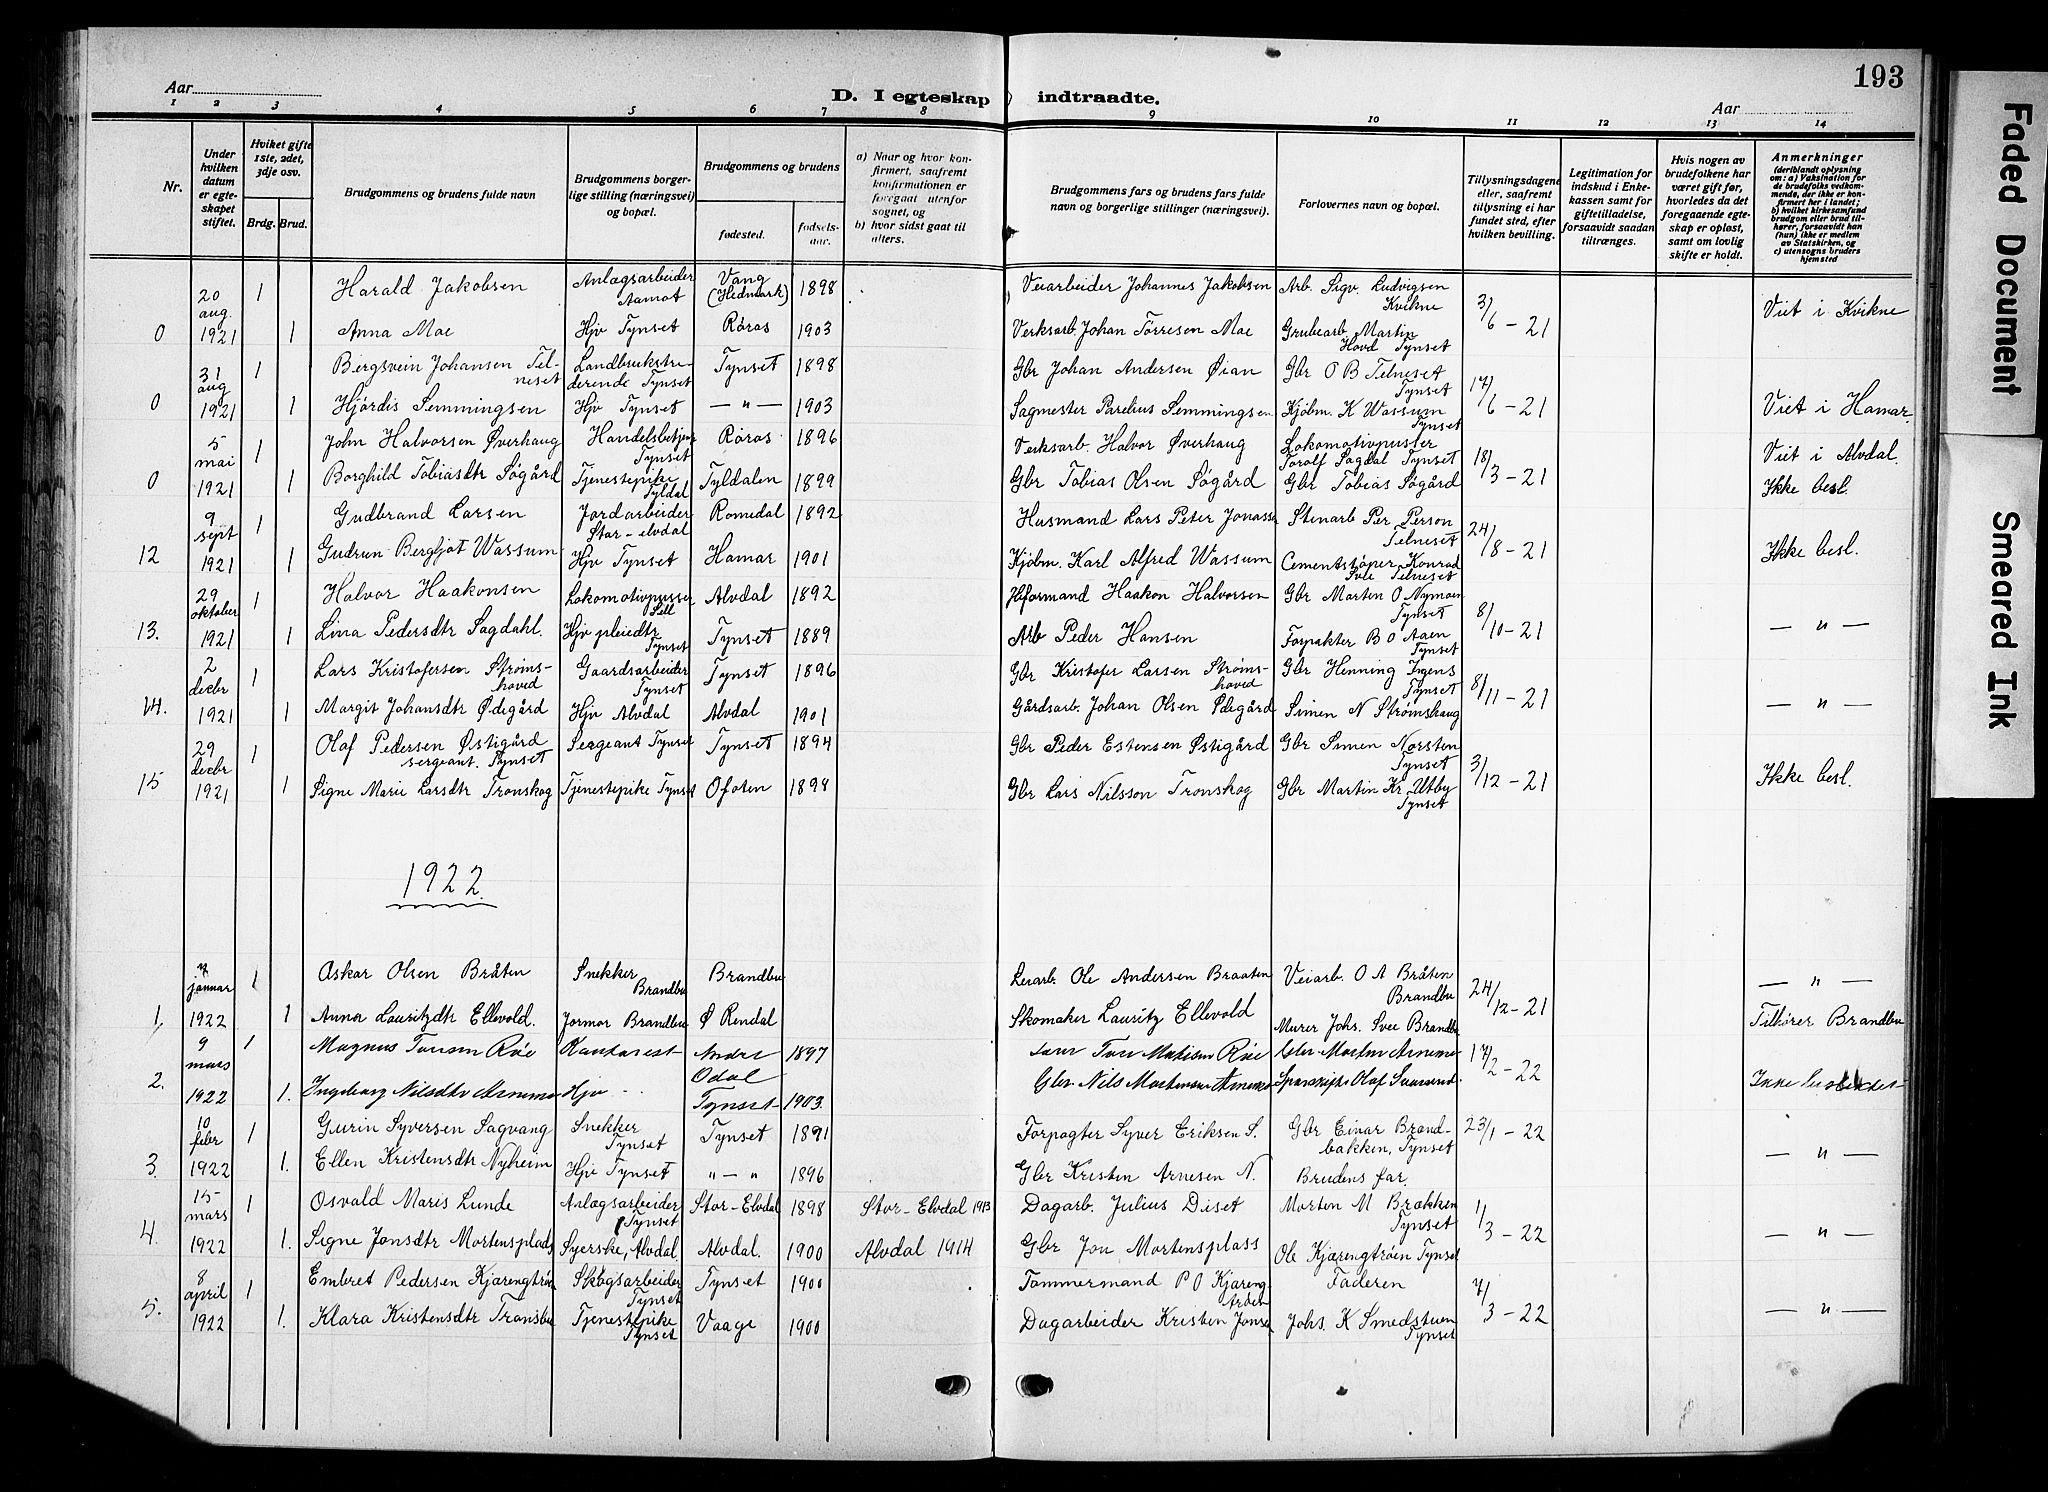 193
Aar
D. I egteskap indtraadte.
Aar
1 2 3 4 5 6 7 8 9 10 11 12 13 14
Nr.
Under hvilken datum er egteskapet stiftet.
Hviket gifte 1ste, 2det, 3dje osv.
Brdg. Brud.
Brudgommens og brudens fulde navn
Brudgommens borgerlige stilling (næringsvei) og bopæl.
Brudgommens og brudens
fødested.
fødselsaar.
a) Naar og hvor konfirmert, saafremt konfirmationen er foregaat utenfor sognet, og
b) hvor sidst gaat til alters.
Brudgommens fars og brudens fars fulde navn og borgerlige stillinger (næringsvei).
Forlovernes navn og bopæl.
Tillysningsdagene eller, saafremt tillysning ei har fundet sted, efter hvilken bevilling.
Legitimation for indskud i Enkekassen samt for giftetilladelse, forsaavidt saadan tiltrænges.
Hvis nogen av brudefolkene har været gift før, hvorledes da det foregaaende egteskap er opløst, samt om lovlig skifte er holdt.
Anmerkninger (deriblandt oplysning om: a) Vaksination for de brudefolks vedkommende, der ikke er konfirmert her i landet; b) hvilket kirkesamfund brudgom eller brud tilhører, forsaavidt han (hun) ikke er medlem av Statskirken, og c) utensogns bruders hjemsted
20 aug. 1 Harald Jakobsen Anlægsarbeider Aamot Vang (Hedmark) 1898 Veiarbeider Johannes Jakobsen Arb. Sigv. Ludvigsen Kvikne 3/6 - 21 Viet i Kvikne
0 1921 1 Anna Moe Hjv Tynset Røros 1903 Verksarb. Johan Tørresen Moe Grubearb. Martin Hovd Tynset
31 aug 1 Bergsvein Johansen Telneset Landbrukstrederende Tynset Tynset 1898 Gbr Johan Andersen Øian Gbr O B Telneset Tynset 17/6 - 21
0 1921 1 Hjördis Semmingsen Hjv Tynset — " — 1903 Sagmester Parelius Semmingsen Kjøbm. K Wassum Tynset Viet i Hamar
5 mai 1 John Halvorsen Øverhaug Handelsbetjent Tynset Røros 1896 Verksarb. Halvor Øverhaug Lokomotivpusser Torolf Sagdal Tynset 18/3 - 21 Viet i Alvdal.
0 1921 1 Borghild Tobiasdtr Søgård Tjenestepike Tyldal Tyldalen 1899 Gbr Tobias Olsen Søgård Gbr Tobias Søgård Ikke besl.
9 sept 1 Gudbrand Larsen Jordarbeider Stor-elvdal Romedal 1892 Husmand Lars Peter Jonassen Stenarb Per Person Telneset 24/8 - 21
12 1921 1 Gudrun Bergljot Wassum Hjv Tynset Hamar 1901 Kjøbm. Karl Alfred Wassum Cementstøper Konrad Svee Telneset Ikke besl.
29 oktober 1 Halvor Haakonsen Lokomotivpusser Lill Alvdal 1892 Formand Haakon Halvorsen Gbr Morten O Nymoen Tynset 8/10 - 21
13. 1921 1 Lina Pedersdtr Sagdahl. Hjv pleiedtr Tynset Tynset 1889 Arb Peder Hansen Forpakter B O Aaen Tynset — " —
2 decbr 1 Lars Kristofersen Strømshoved Gaardsarbeider Tynset Tynset 1896 Gbr Kristofer Larsen Strømshoved Gbr Henning Ingens Tynset 8/11 - 21
14. 1921 1 Margit Johansdtr Ødegård Hjv Alvdal Alvdal 1901 Gårdsarb. Johan Olsen Ødegård Simen N Strømshaug — " —
29 decbr 1 Olaf Pedersen Østigård sergeant. Tynset Sergeant Tynset Tynset 1894 Gbr Peder Estensen Østigård Gbr Simen Norsten Tynset 3/12 - 21
15 1921 1 Signe Marie Larsdtr Tronskog Tjenestepike Tynset Ofoten 1894 Gbr Lars Nilsson Tronskog Gbr Martin Kr Utby Tynset Ikke besl.
1922
7 januar 1 Oskar Olsen Bråten Snekker Brandbu Brandbu Leiarb. Ole Andersen Braaten Veiarb. O A Bråten Brandbu 24/12 - 21 — " —
1, 1922 1 Anna Lauritzdtr Ellevold. Jormor Brandbu Ø Rendal Skomaker Lauritz Ellevold Murer Johs. Svee Brandbu Tilhører Brandbu
9 mars 1 Magnus Røe Andre Odal 1897 Røe Gbr. Morten 17/2 - 22
2. 1922 1. Ingeborg Nilsdtr Hjv Tynset 1903. Gbr. Nils Mortensen Olaf Ikke
10 febr 1 Gurin Syversen Sagvang Snekker Tynset Tynset 1891 Forpagter Syver Eriksen S. Gbr Einar Brandbakken, Tynset 23/1 - 22
3. 1922 1. Ellen Kristensdtr Nyheim Hjv Tynset " — " 1896 Gbr Kristen Arnesen N. Brudens far. — " —
15 mars 1 Osvald Maris Lunde Anlægsarbeider Tynset Stor-Elvdal 1898 Stor-Elvdal 1913 Dagarb. Julius Diset Morten M Brækken Tynset 1/3 - 22
4. 1922 1. Signe Jonsdtr Mortensplads Syerske, Alvdal Alvdal. 1900 Alvdal 1914 Gbr Jon Mortensplass Ole Kjærengtrøen Tynset — " —
8 april 1 Embret Pedersen Kjærengtrøen Skogsarbeider Tynset Tynset 1900 Tømmermand P O Kjærengtrøen Faderen 7/3 - 22
5. 1922 1. Klara Kristensdtr Transbu Tjenestepike Tynset Vaage 1900 Dagarbeider Kristen Jonsen Johs. K Smedstuen Tynset — " —
Faded Document Smeared Ink